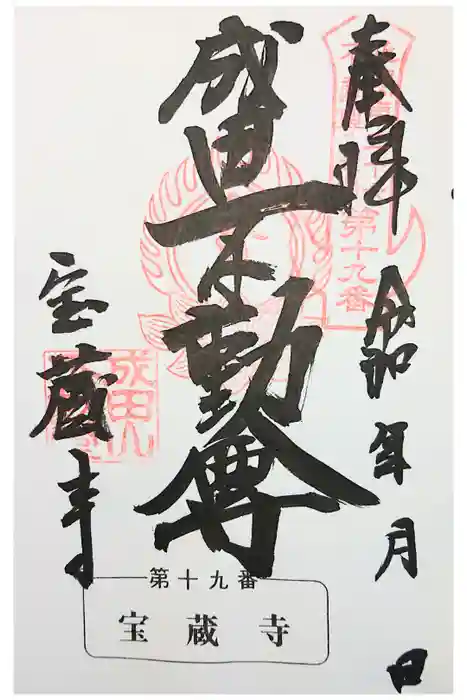 奉拝
令和 年 月 日
成田不動尊
宝蔵寺
第十九番
成田山
第十九番
宝蔵寺